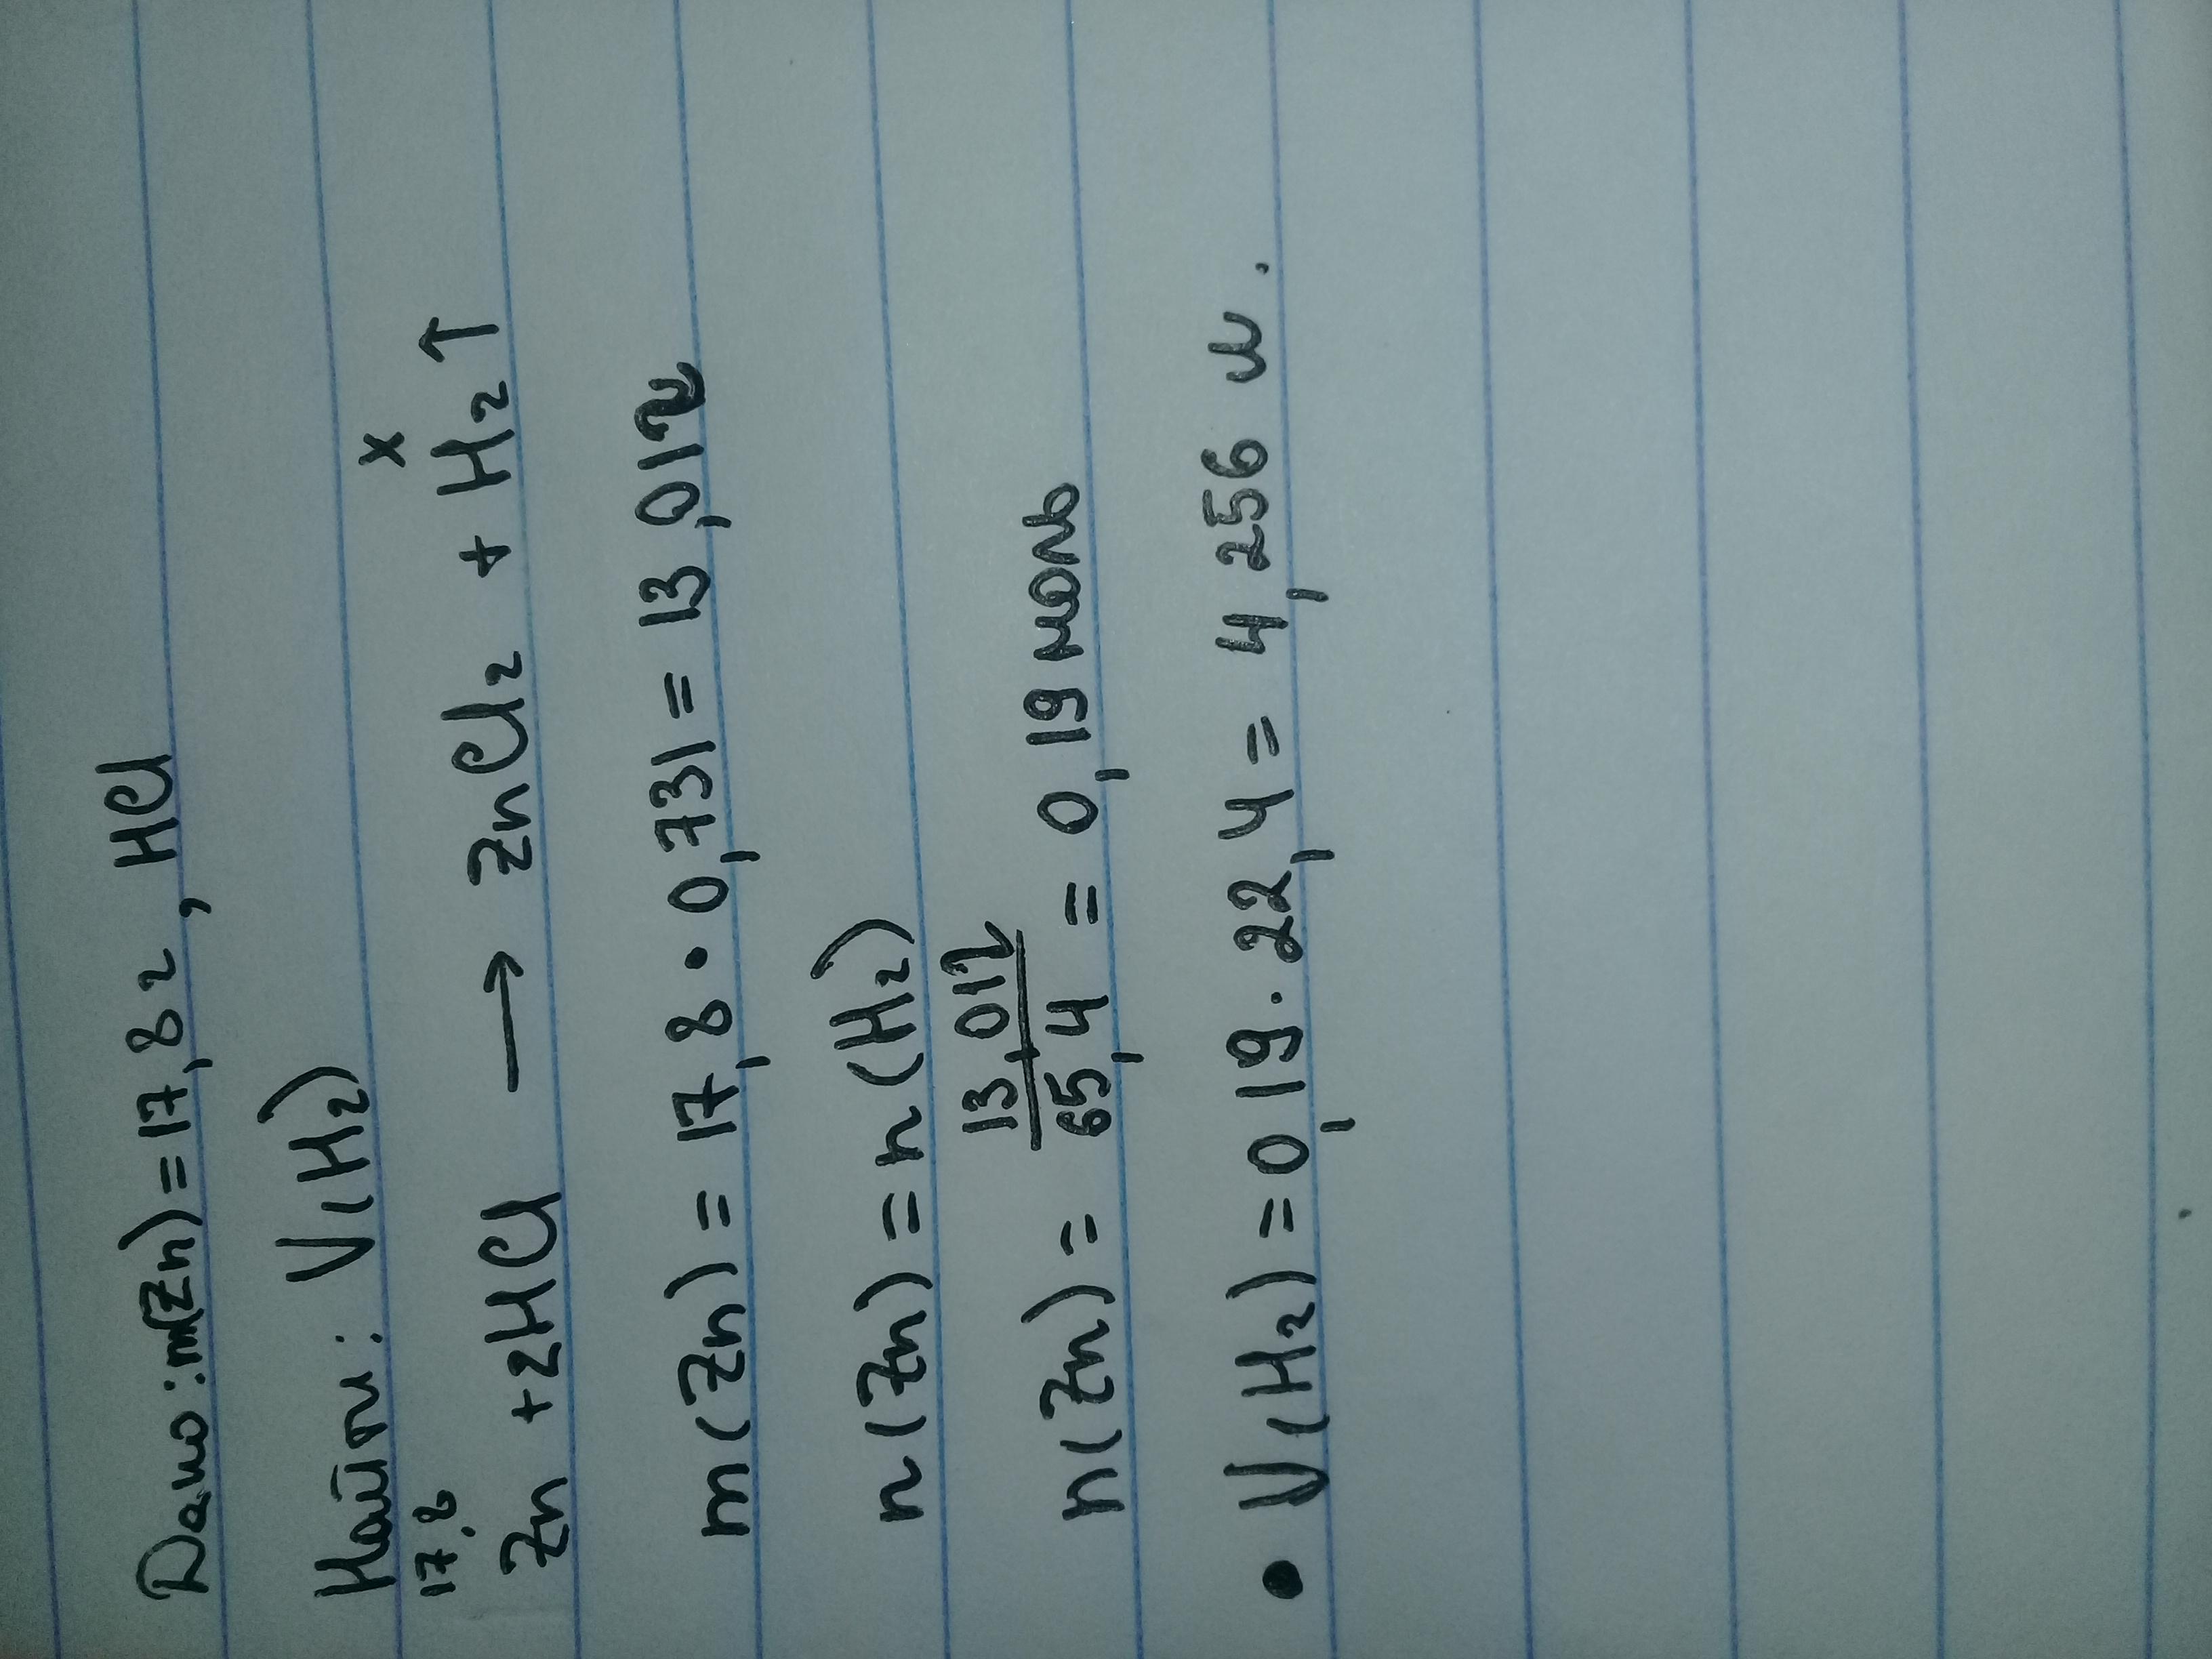 Дано: m(Zn) = 17,8 г, HCl
Найти: V(H₂)
17,8 x
Zn + 2HCl → ZnCl₂ + H₂↑
m(Zn) = 17,8 • 0,731 = 13,01г
n(Zn) = n(H₂)
n(Zn) = 13,01г/65,4 = 0,19 моль
• V(H₂) = 0,19 . 22,4 = 4,256 л.